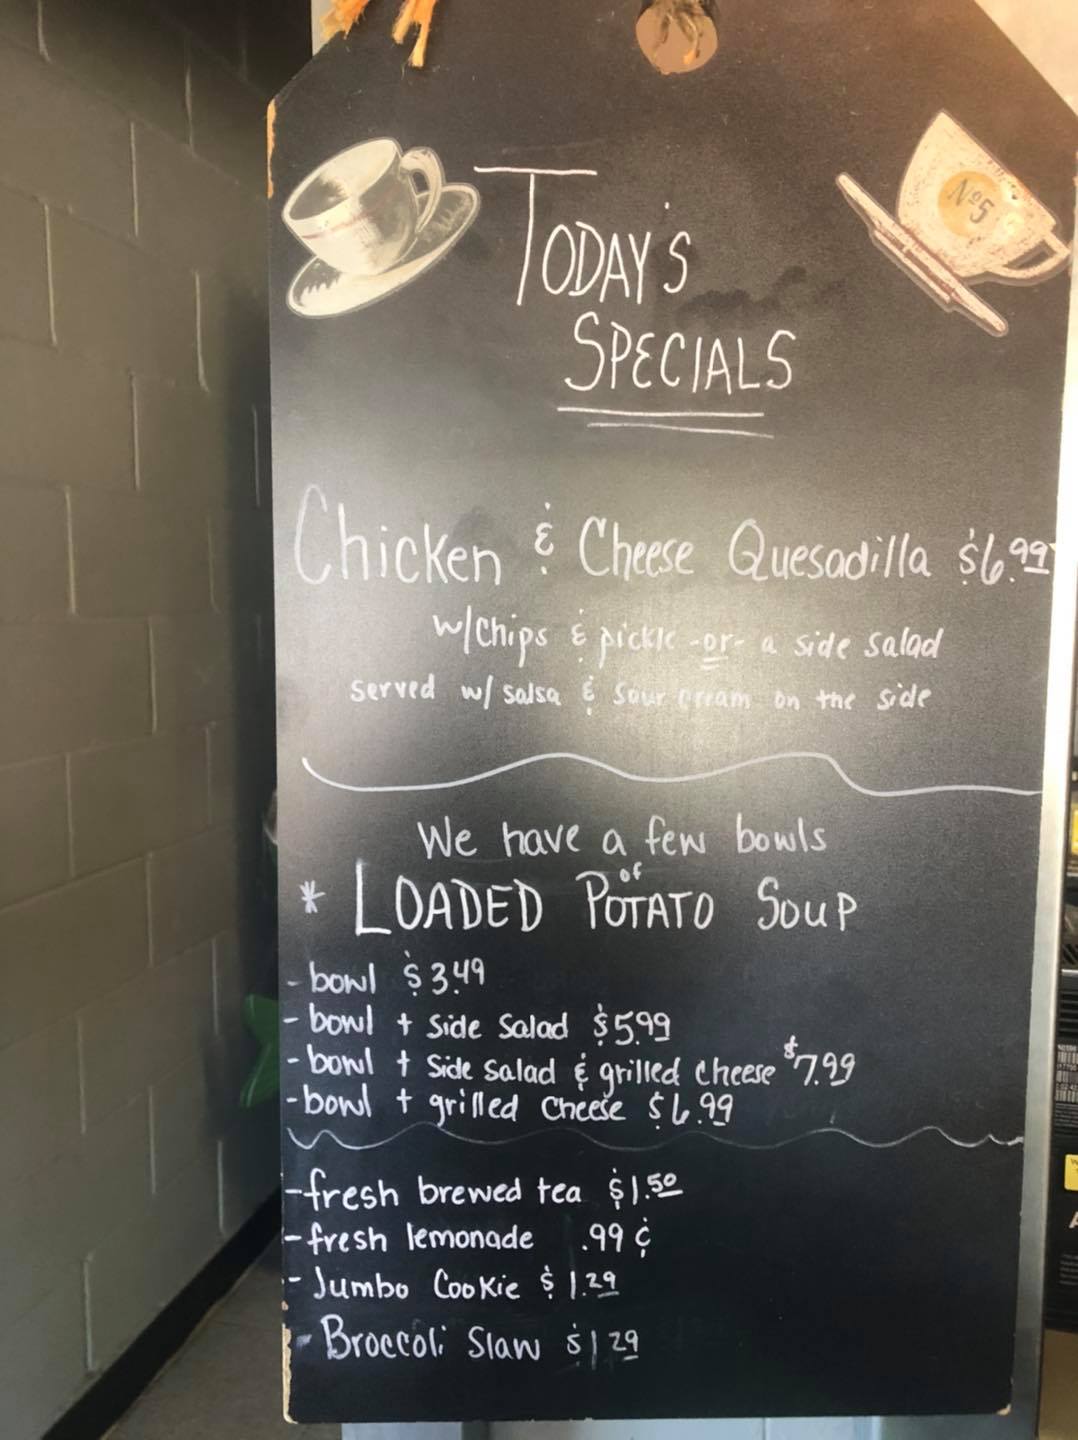 TODAY'S
SPECIALS
No5
Chicken & Cheese Quesadilla $6.99
w/chips & pickle -or- a side salad
served w/ salsa & sour cream on the side
We have a few bowls
of
* LOADED POTATO SOUP
- bowl $3.49
- bowl + side salad $5.99
- bowl + side salad & grilled cheese $7.99
- bowl + grilled cheese $6.99
- fresh brewed tea $1.50
- fresh lemonade .99¢
- Jumbo Cookie $1.29
- Broccoli Slaw $1 29